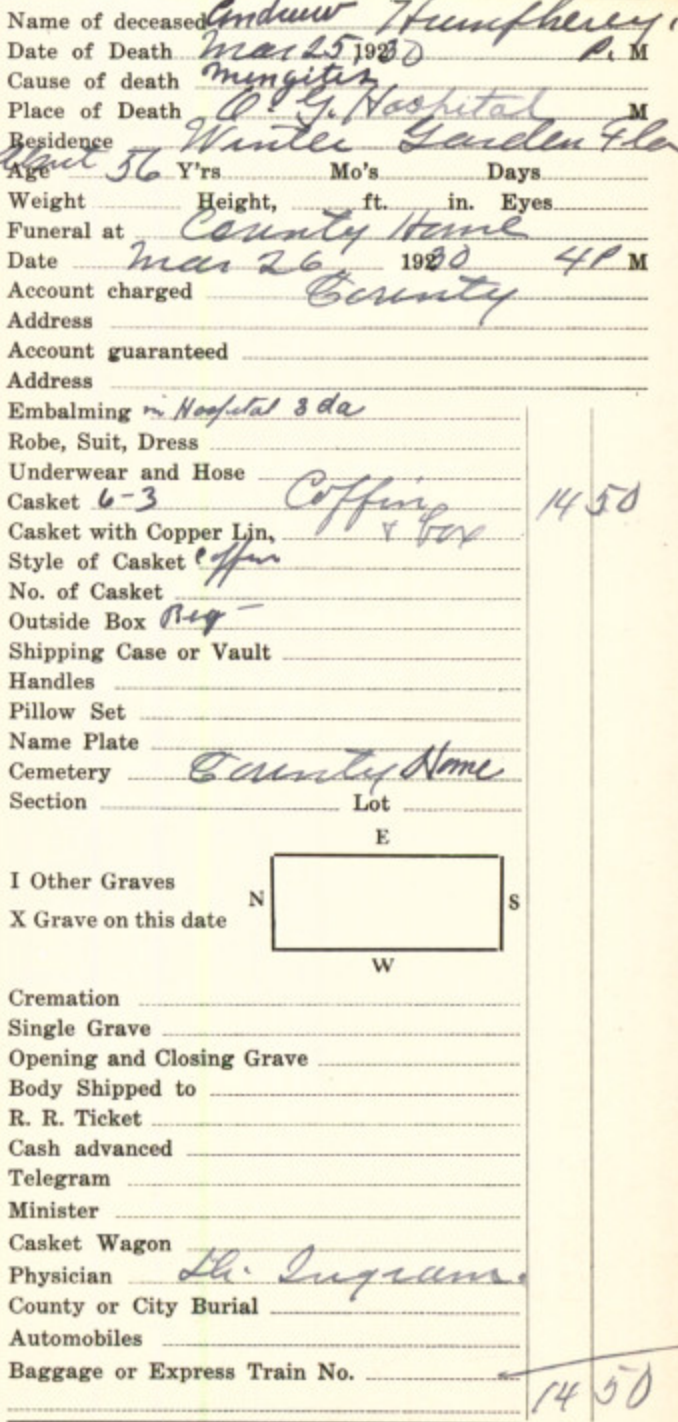 Name of deceased Andrew Humpherey
Date of Death Mar 25, 1930 P. M
Cause of death Mengites
Place of Death O. G. Hospital M
Residence Winter Garden Fla
Age 56 Y'rs Mo's Days
Weight Height, ft. in. Eyes
Funeral at County Home
Date Mar 26 1930 4 P M
Account charged County
Address
Account guaranteed
Address
Embalming in Hospital 3 da
Robe, Suit, Dress
Underwear and Hose
Casket 6-3 Coffin 14 50
Casket with Copper Lin, & box
Style of Casket Coffin
No. of Casket
Outside Box Reg-
Shipping Case or Vault
Handles
Pillow Set
Name Plate
Cemetery County Home
Section Lot
E
I Other Graves
N S
X Grave on this date
W
Cremation
Single Grave
Opening and Closing Grave
Body Shipped to
R. R. Ticket
Cash advanced
Telegram
Minister
Casket Wagon
Physician Dr. Ingram.
County or City Burial
Automobiles
Baggage or Express Train No.
14 50